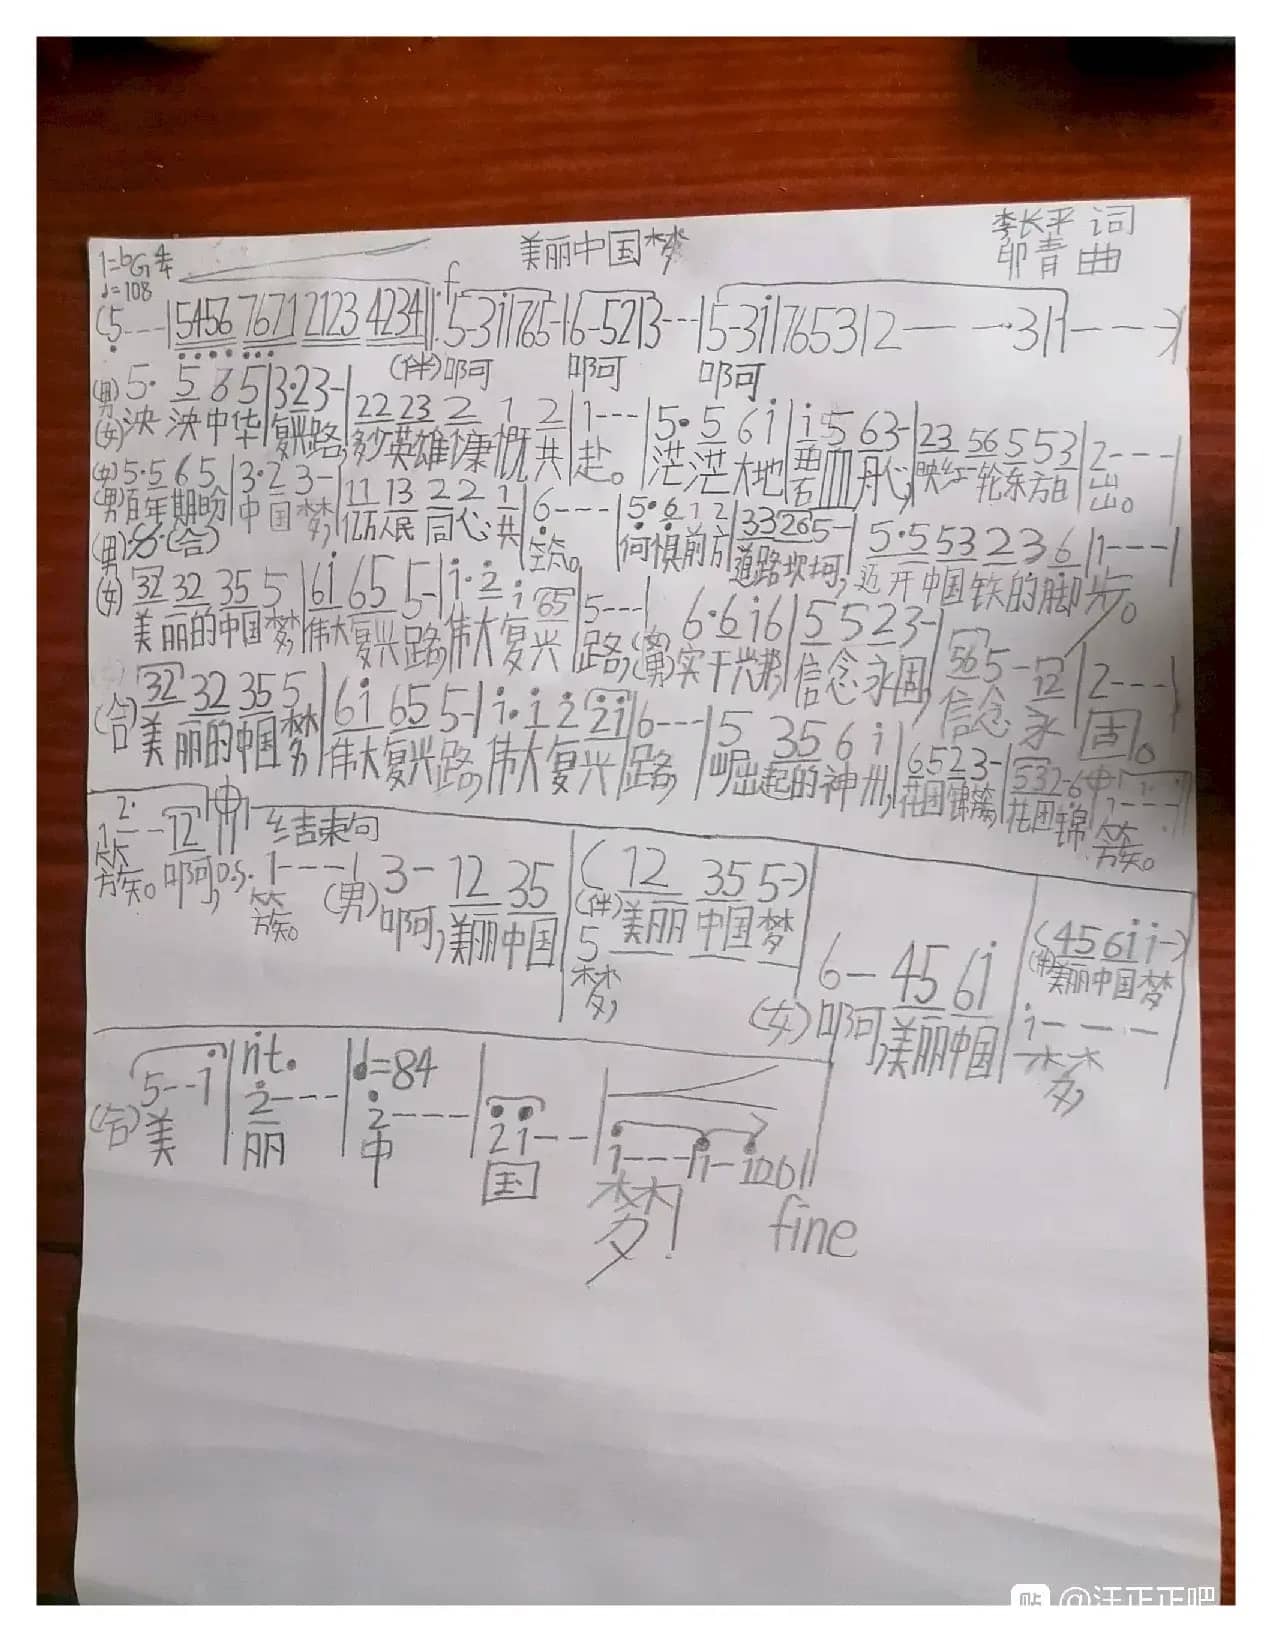 美丽中国梦
李长平 词
卯青 曲
1=bG 4/4
♩=108
(5--- | 5456 7671 2123 4234 ‖: f 5-3i | 765- | 6-52 | 3--- | 5-3i | 7653 | 2 --- 3 | 1 ---)
(伴)啊 啊 啊
(男) 5· 5 6 5 | 3·23- | 22 23 2 1 2 | 1--- | 5· 5 6 i | i 5 63- | 23 56 5 53 | 2---
(女) 泱 泱中华 复兴路, 多少英雄慷慨共赴。 茫茫大地 洒血丹心, 映红一轮东方日出。
5·5 6 5 | 3·2 3- | 11 13 2 2 1 | 6--- | 5·6 1 2 | 33 26 5- | 5·5 53 2 3 6 | 1---
(男) 百年期盼 中国梦, 亿万人民同心共筑。 何惧前方 道路坎坷, 迈开中国铁的脚步。
(男) 𝄋 (合)
(女) 32 32 35 5 | 6i 65 5- | i·2 i 65 | 5--- | 6·6 i6 | 5 5 2 3- | 56 5 - 12 | 2---
美丽的中国梦, 伟大复兴路, 伟大复兴路, 实干兴邦, 信念永固, 信念永固。
(合) 32 32 35 5 | 6i 65 5- | i·i 2 2i | 6--- | 5 35 6 i | 6523- | 532-6 | 1---
美丽的中国梦 伟大复兴路, 伟大复兴路, 崛起的神州, 花团锦簇, 花团锦簇。
1 2· - - 12 结束句
簇。啊, D.S. 1--- | (男) 3- 12 35 | (12 35 5-)
簇。 啊, 美丽中国 (伴)美丽 中国梦
5 - - -
梦,
6- 45 6i | (45 6i i-)
(女) 啊, 美丽中国 (伴)美丽中国梦
i - - -
梦,
5--i | rit. 2--- | ♩=84 2---- | 2i-- | i--- | i-i00 ‖
(合) 美 丽 中 国 梦! fine
@汪正正吧